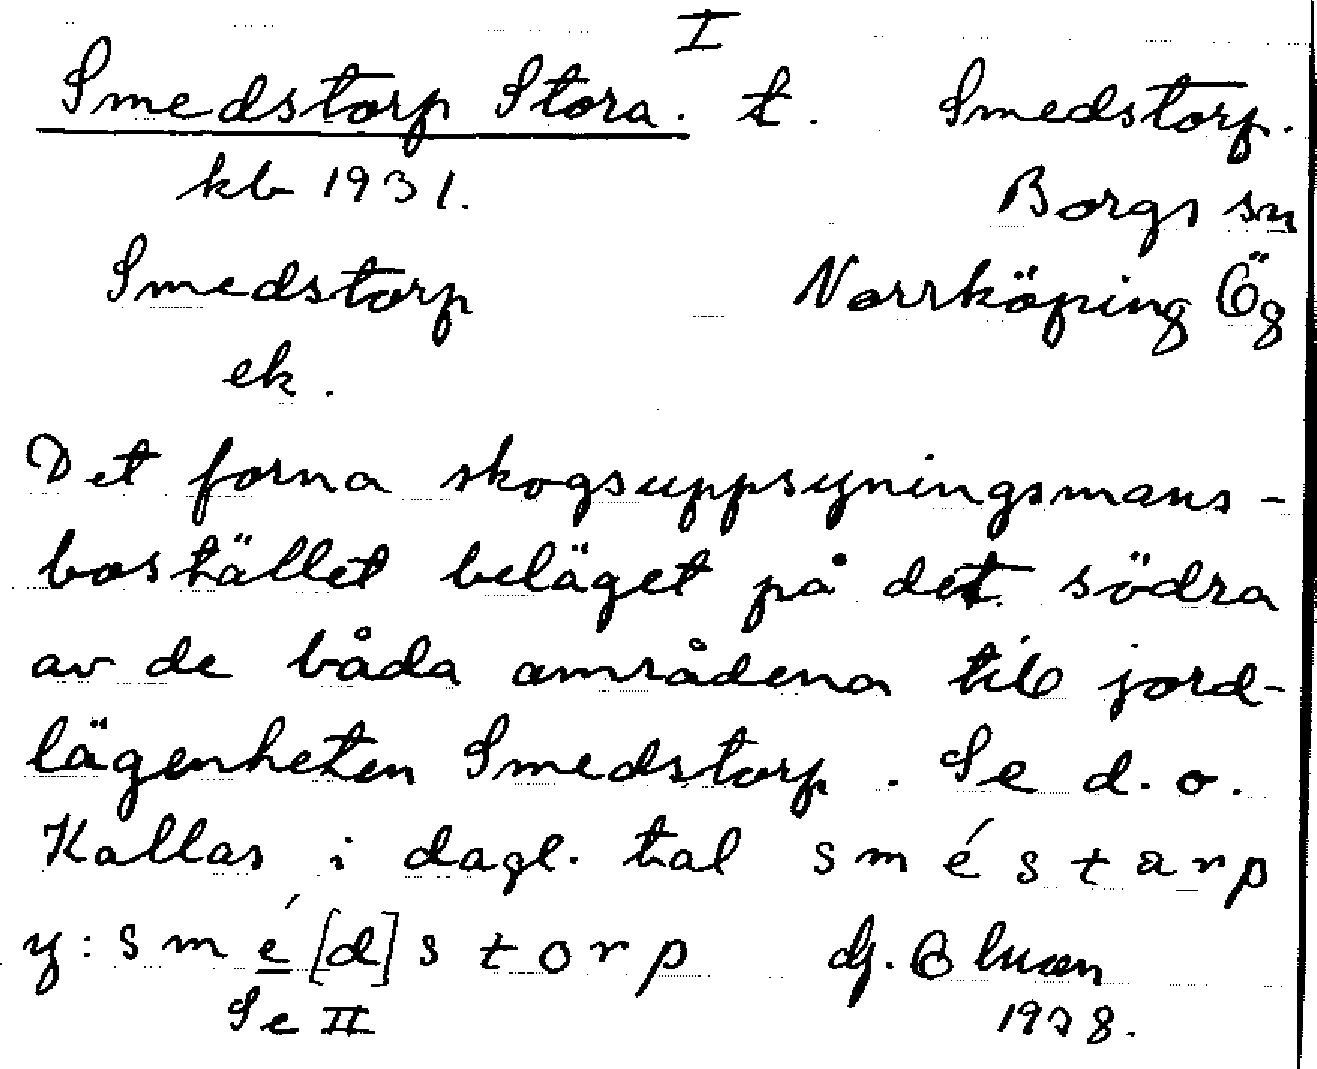 I
Smedstorp Stora. t. Smedstorp.
kb 1931. Borgs sn
Smedstorp Norrköping Ög
ek.
Det forna skogsuppsyningsmans-
bostället beläget på det södra
av de båda områdena till jord-
lägenheten Smedstorp. Se d. o.
Kallas i dagl. tal s m é s t a r p
y: s m é [d] s t o r p
Se II 1938.